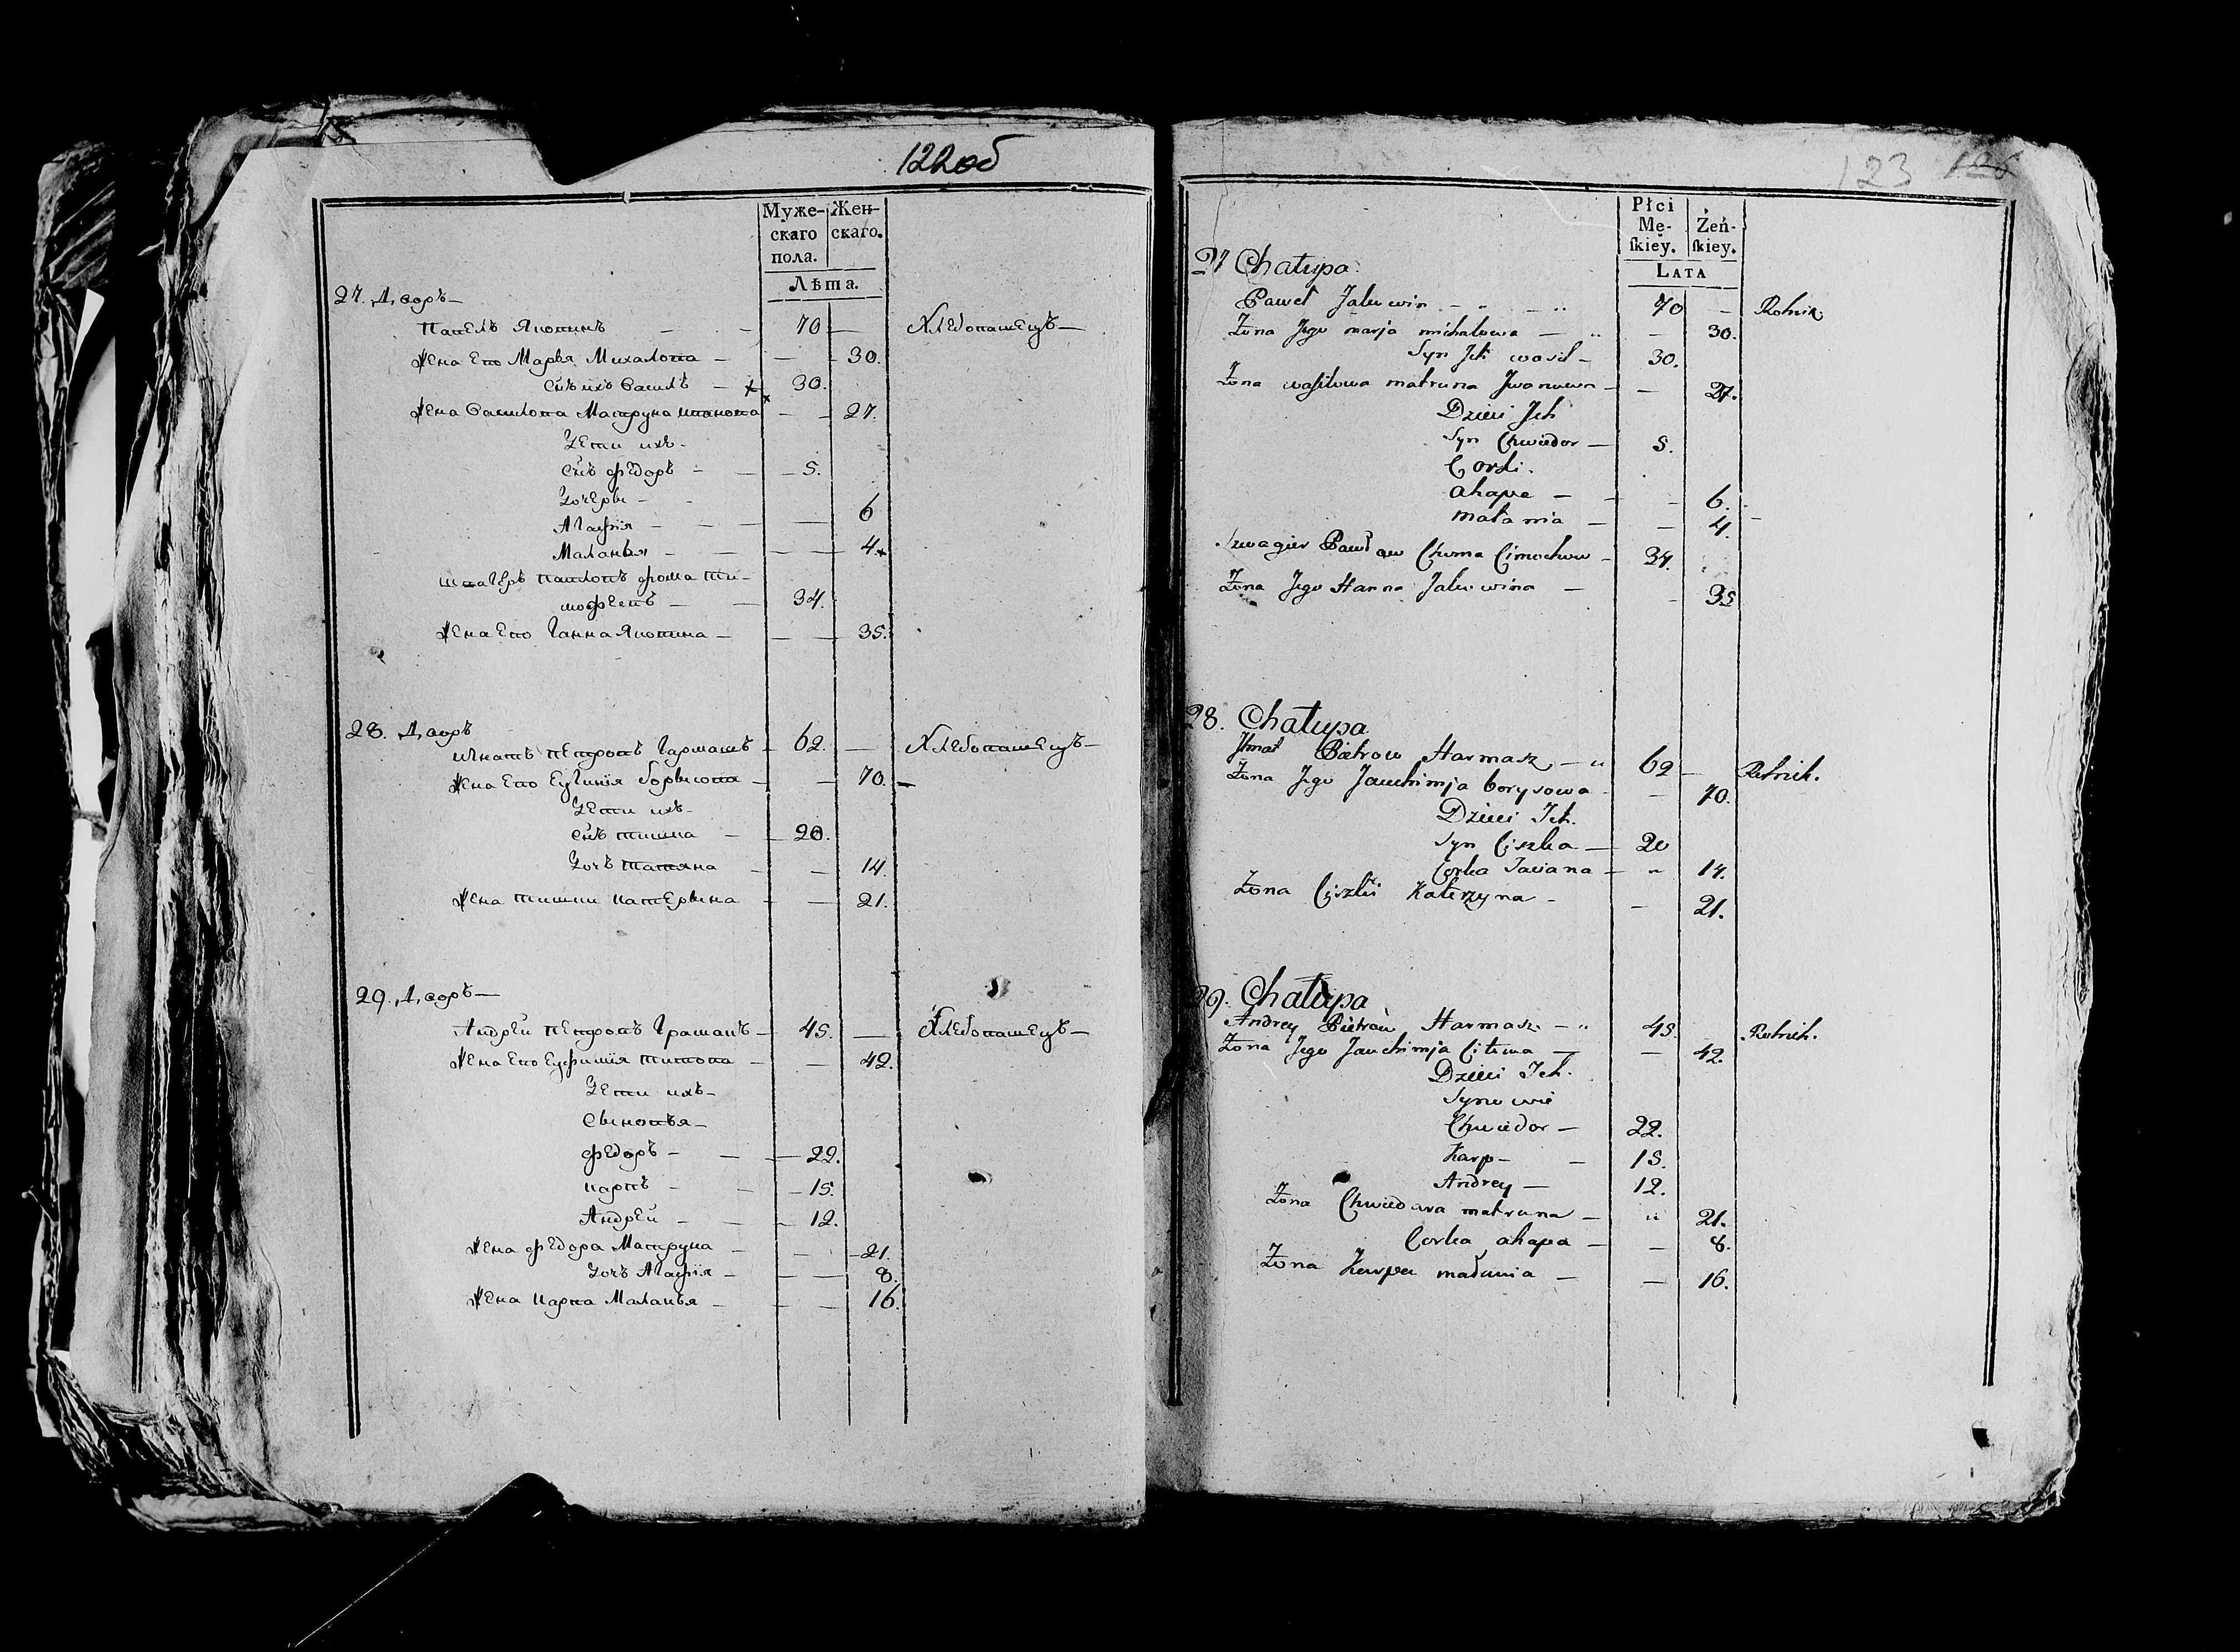 122об
Муже- Жен-
скаго скаго.
пола.
Лѣта.
27. Дворъ—
Павелъ Яковинъ — — 70 — Хлебопашецъ—
Жена Его Марья Михалова — — 30.
Сн͠ъ ихъ Василь — 30.
Жена Василова Матруна иванова — — 27.
Дети ихъ-
Сн͠ъ Федоръ — — 5.
Дочеры — -
Агафія — — — 6
Маланья — — — 4.
швагеръ павловъ фома ти-
мофеевъ — — 34.
Жена Его Ганна Яковина — — — 35.
28. Дворъ
игнатъ петровъ Гармашъ — 62. — Хлебопашецъ—
Жена Его Еугинія борысова — — 70. —
Дети ихъ-
Сн͠ъ тишка — — 20.
Дочъ татяна — — 14.
Жена тишки катерына — — 21.
29. Дворъ—
Андрей петровъ Грамашъ — 45. — Хлебопашецъ—
Жена Его Еуфимія титова — — 42.
Дети ихъ—
Сыновья—
федоръ — — — 22.
карпъ — — — 15.
Андрей — — — 12.
Жена федора Матруна — — — 21.
Дочъ Агафія — — — 8.
Жена карпа Маланья — — — 16.
123
Płci
Mę- Żeń-
ſkiey. ſkiey.
LATA
27 Chałupa
Paweł Jakuwin — „ — „ 70 — Rolnik
Żona Jego marja michałowa — „ — 30.
Syn Ich wasil — 30.
Żona wasilowa matruna Iwanowa — — 27.
Dzieci Ich
Syn Chwiedor — 5.
Corki.
ahapa — — — 6.
małania — — 4. —
Szwagier Pawłow Choma Cimochow — 34.
Żona Jego Hanna Jakuwina — — 35
28. Chałupa
Ihnat Pietrow Harmasz — „ 62 — Rolnich.
Żona Jego Jauchimja borysowa — — 70.
Dzieci Ich.
Syn Ciszka — 20
Corka Taciana — „ 14.
Żona Ciszki Katerzyna — — 21.
29. Chałupa
Andrey Pietrow Harmasz — „ 45. — Rolnich.
Żona Jego Jauchimja Citowa — — 42.
Dzieci Ich.
Synowie
Chwiedor — 22.
Karp — — 15.
Andrey — 12.
Żona Chwiedora matruna — „ 21.
Corka ahapa — — 8.
Żona Karpa małania — — 16.